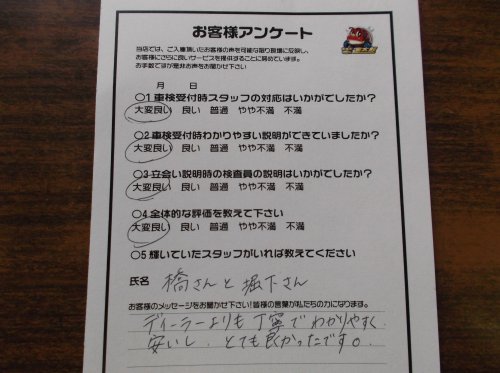 お客様アンケート
当店では、ご入庫頂いたお客様の声を可能な限り現場に反映し、
お客様にさらに良いサービスを提供することに努めています。
お手数ですが是非お声をお聞かせ下さい
月 日
○1車検受付時スタッフの対応はいかがでしたか?
大変良い 良い 普通 やや不満 不満
○2車検受付時わかりやすい説明ができていましたか?
大変良い 良い 普通 やや不満 不満
○3立会い説明時の検査員の説明はいかがでしたか?
大変良い 良い 普通 やや不満 不満
○4全体的な評価を教えて下さい
大変良い 良い 普通 やや不満 不満
○5輝いていたスタッフがいれば教えてください
氏名 橋さんと堀下さん
お客様のメッセージをお聞かせ下さい!皆様の言葉が私たちの力になります。
ディーラーよりも丁寧でわかりやすく
安いし、とても良かったです。